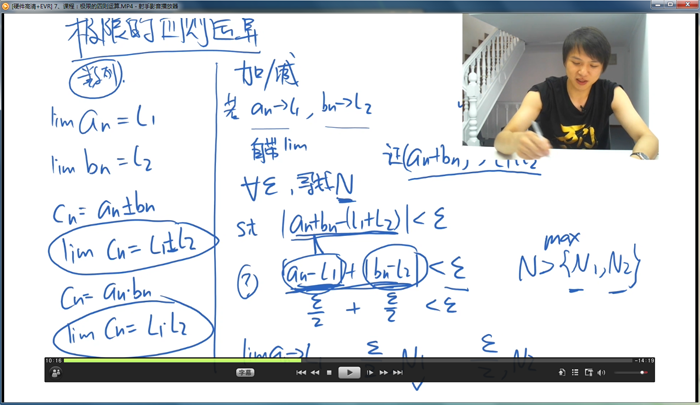 [硬件高清+EVR] 7、课程：极限的四则运算.MP4 - 射手影音播放器
极限的四则运算
数列
lim an = L1
lim bn = L2
Cn = an±bn
lim Cn = L1±L2
Cn = an·bn
lim Cn = L1·L2
加/减
若 an→L1, bn→L2
自带 lim
证(an+bn
∀ε, 寻找N
st |an+bn-(L1+L2)| < ε
? |an-L1| + |bn-L2| < ε
ε/2 + ε/2 < ε
max
N>{N1,N2}
ε N1 ε/2, N2
10:16
-14:19
字幕